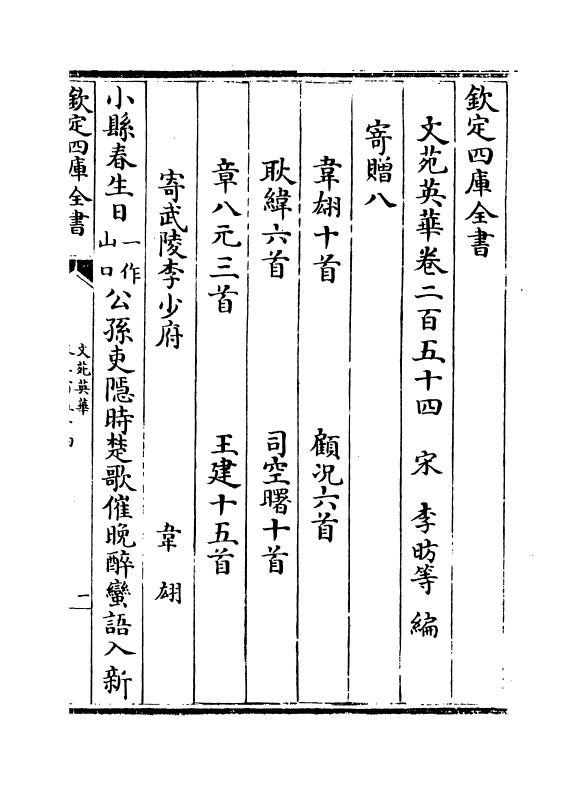 欽定四庫全書
文苑英華卷二百五十四　宋　李昉等　編
寄贈八
韋翃十首　顧況六首
耿緯六首　司空曙十首
章八元三首　王建十五首
寄武陵李少府　韋翃
小縣春生日一作山口公孫吏隱時楚歌催晚醉蠻語入新
欽定四庫全書
文苑英華
一